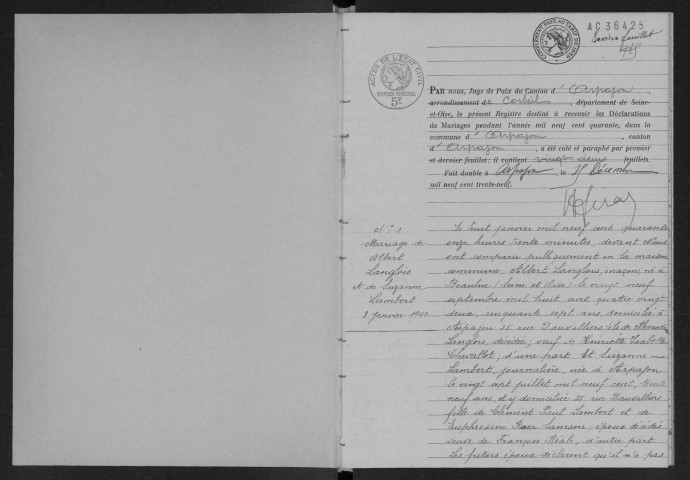 AC 36425
Dernier feuillet
COMPTANT PAYÉ AU TARIF DE
ACTES DE L'ÉTAT CIVIL
PAPIER SPÉCIAL
5F
PAR nous, Juge de Paix du Canton d'Arpajon,
arrondissement de Corbeil, département de Seine-
et-Oise, le présent Registre destiné à recevoir les Déclarations
de Mariages pendant l'année mil neuf cent quarante, dans la
commune d'Arpajon, canton
d'Arpajon, a été coté et paraphé par premier
et dernier feuillet: il contient vingt deux feuillets.
Fait double à Arpajon, le 15 Décembre
mil neuf cent trente-neuf.
N° 1
Mariage de
Albert
Langlois
et de Suzanne
Lambert
8 Janvier 1940
Le huit janvier mil neuf cent quarante
onze heures trente minutes, devant Nous
ont comparu publiquement en la maison
commune, Albert Langlois, maçon, né à
(Seine et Oise) le vingt neuf
septembre mil huit cent quatre vingt
deux, cinquante sept ans, domicilié à
Arpajon 35 rue Dauvilliers, fils de
Langlois, décédé; veuf de Henriette
Chevallot; d'une part. Et Suzanne
Lambert, journalière, née à Arpajon
le vingt sept juillet mil neuf cent, trente
neuf ans, et y domiciliée 35 rue Dauvilliers
fille de Clément Paul Lambert et de
Euphrosine Samson; époux décédés
veuve de François Réale, d'autre part.
Les futurs époux déclarent qu'il n'a pas